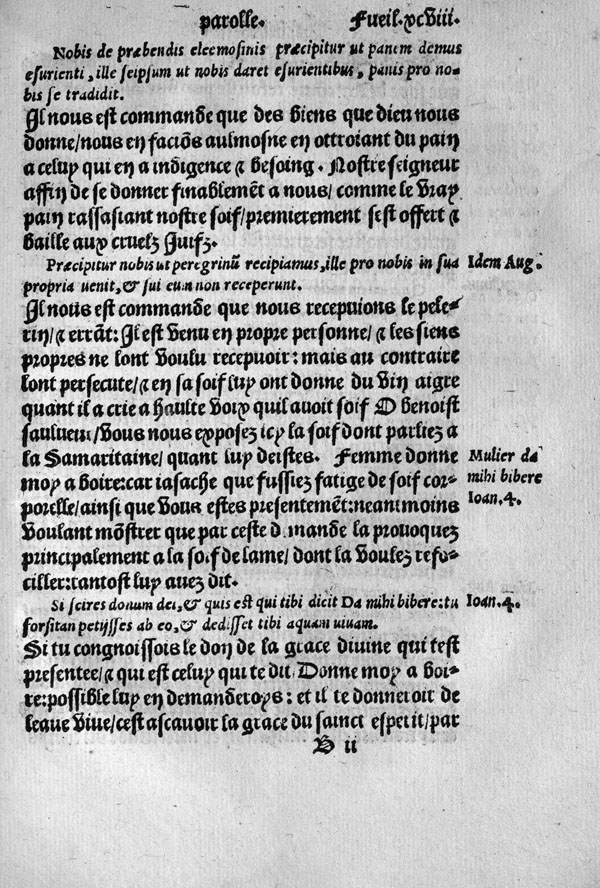 parolle. Fueil.xcviii.
Nobis de præbendis eleemosinis præcipitur ut panem demus
esurienti, ille seipsum ut nobis daret esurientibus, panis pro no-
bis se tradidit.
Il nous est commande que des biens que dieu nous
donne/nous en faciõs aulmosne en ottroiant du pain
a celuy qui en a indigence & besoing. Nostre seigneur
affin de se donner finablemẽt a nous/ comme le vray
pain rassasiant nostre soif/premierement sest offert &
baille aux cruelz Juifz.
Præcipitur nobis ut peregrinũ recipiamus, ille pro nobis in sua Idem Aug.
propria uenit, & sui eum non receperunt.
Il nous est commande que nous recepuions le pele-
rin/& errãt: Il est venu en propre personne/& les siens
propres ne lont voulu recepuoir: mais au contraire
lont persecute/& en sa soif luy ont donne du vin aigre
quant il a crie a haulte voix quil avoit soif O benoist
saulueur/vous nous exposez icy la soif dont parliez a
la Samaritaine/ quant luy deistes. Femme donne Mulier da
moy a boire: car iasache que fussiez fatige de soif cor- mihi bibere
porelle/ainsi que vous estes presentemẽt: neantmoins Ioan.4.
voulant mõstrer que par ceste demande la prouoquez
principalement a la soif de lame/ dont la voulez refo-
ciller: tantost luy auez dit.
Si scires donum dei, & quis est qui tibi dicit Da mihi bibere: tu Ioan.4.
forsitan petijsses ab eo, & dedisset tibi aquam uiuam.
Si tu congnoissois le don de la grace divine qui test
presentee/& qui est celuy qui te dit Donne moy a boi-
re: possible luy en demanderoys: et il te donneroit de
leaue vive/cest ascavoir la grace du sainct esperit/par
B ii